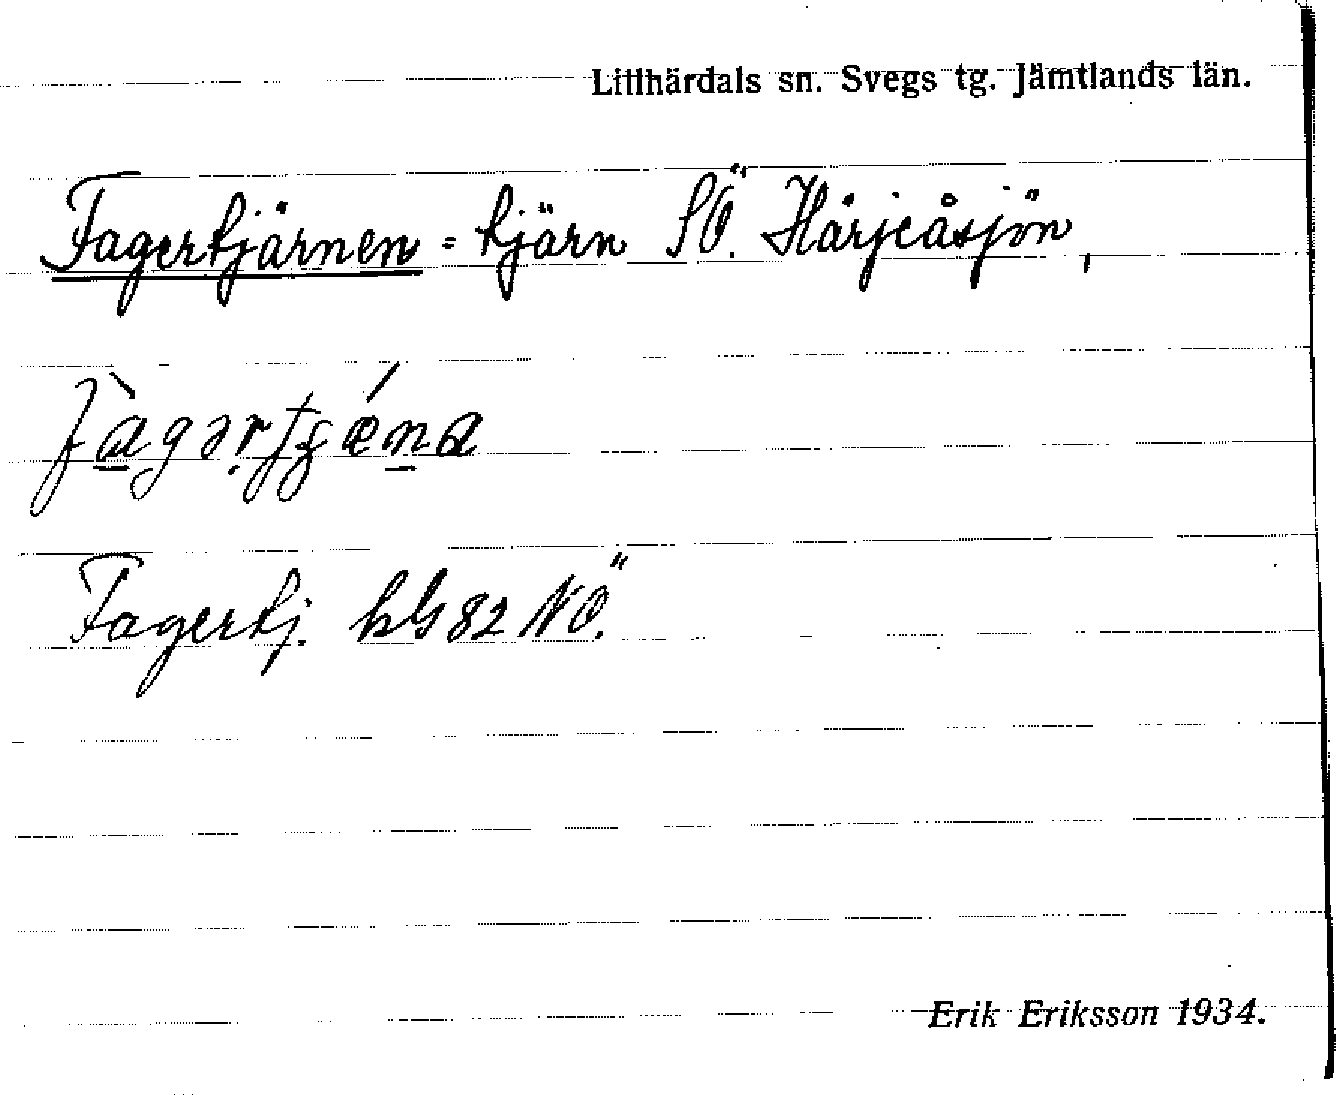 Lillhärdals sn. Svegs tg. Jämtlands län.
Fagertjärnen = tjärn SÖ. Härjeåsjön,
Fagertj. kbl 82 NÖ.
Erik Eriksson 1934.